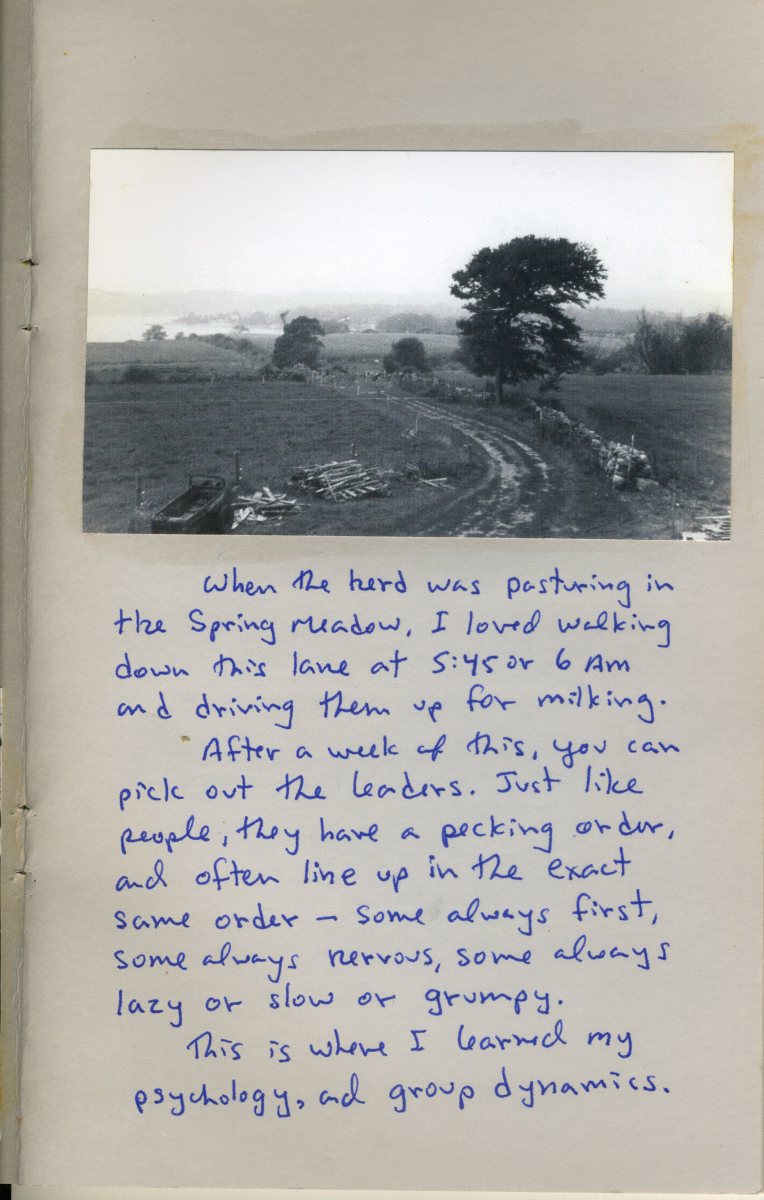 When the herd was pasturing in
the Spring Meadow, I loved walking
down this lane at 5:45 or 6 AM
and driving them up for milking.
After a week of this, you can
pick out the leaders. Just like
people, they have a pecking order,
and often line up in the exact
same order – some always first,
some always nervous, some always
lazy or slow or grumpy.
This is where I learned my
psychology, and group dynamics.